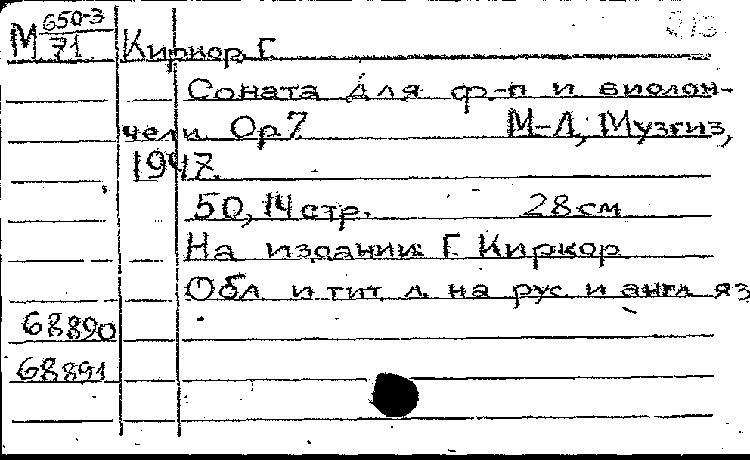 М 650-3
71
Киркор Г.
Соната для ф.-п и виолон-
чели Ор 7 М-Л, Музгиз,
1947.
50, 14 стр. 28 см
На издании: Г. Киркор
Обл и тит л. на рус и англ яз
68890
68891